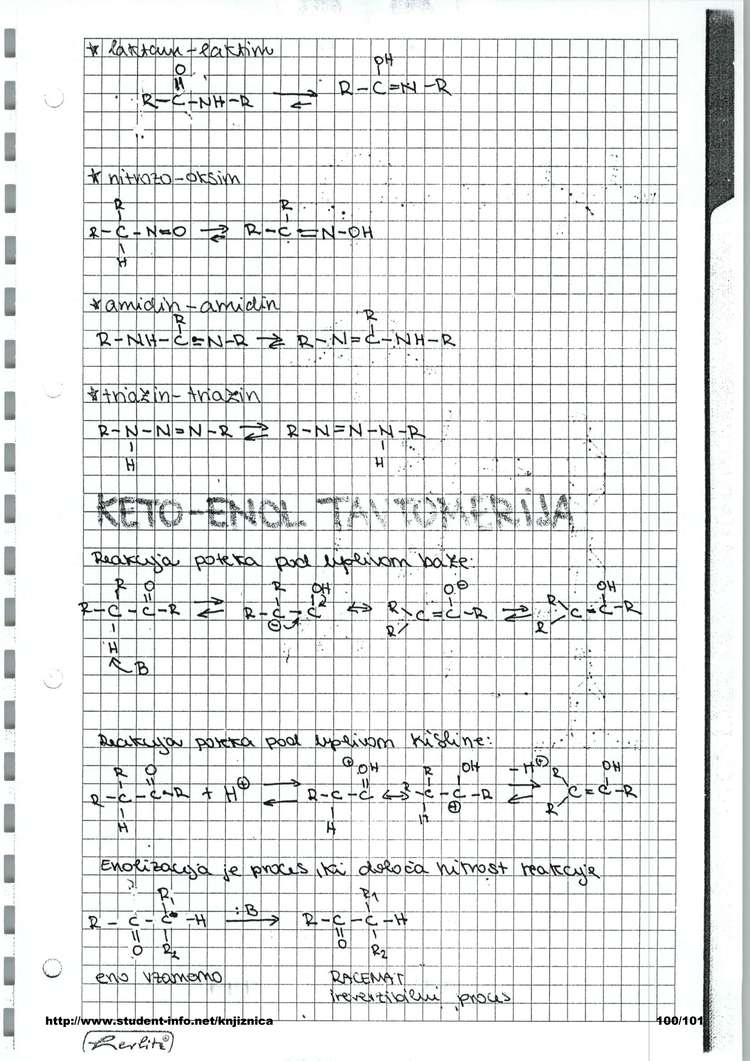 * laktam-laktim
O OH
R-C-NH-R ⇌ R-C=N-R
* nitrozo-oksim
R R
R-C-N=O ⇌ R-C=N-OH
H
* amidin-amidin
R R
R-NH-C=N-R ⇌ R-N=C-NH-R
* triazin-triazin
R-N-N=N-R ⇌ R-N=N-N-R
H H
KETO-ENOL TAVTOMERIJA
Reakcija poteka pod vplivom baze:
R O R OH O⊖ OH
R-C-C-R ⇌ R-C-C ↔ R C=C-R ⇌ R C=C-R
H ⊖ R R
B
Reakcija poteka pod vplivom kisline:
R O ⊕OH R OH -H⊕ R OH
R-C-C-R + H⊕ ⇌ R-C-C ↔ C-C-R ⇌ C=C-R
H H H ⊕ R
Enolizacija je proces, ki določa hitrost reakcije
R1 R1
R-C-C-H :B → R-C-C-H
O R2 O R2
eno vzamemo RACEMAT
ireverzibilni proces
http://www.student-info.net/knjiznica 100/101
Herlitz